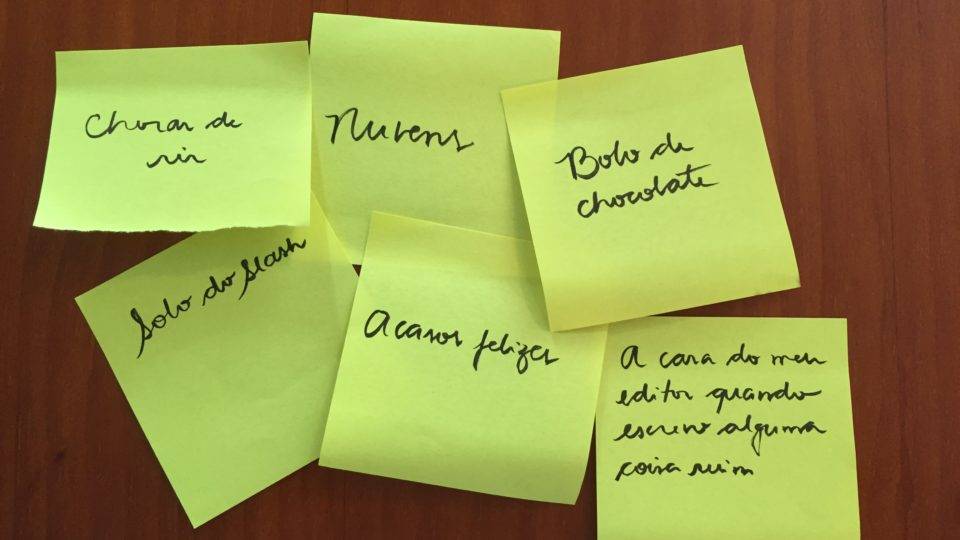 Chorar de
rir
Nuvens
Bolo de
chocolate
Solo do Slash
Acasos felizes
A cara do meu
editor quando
escrevo alguma
coisa ruim